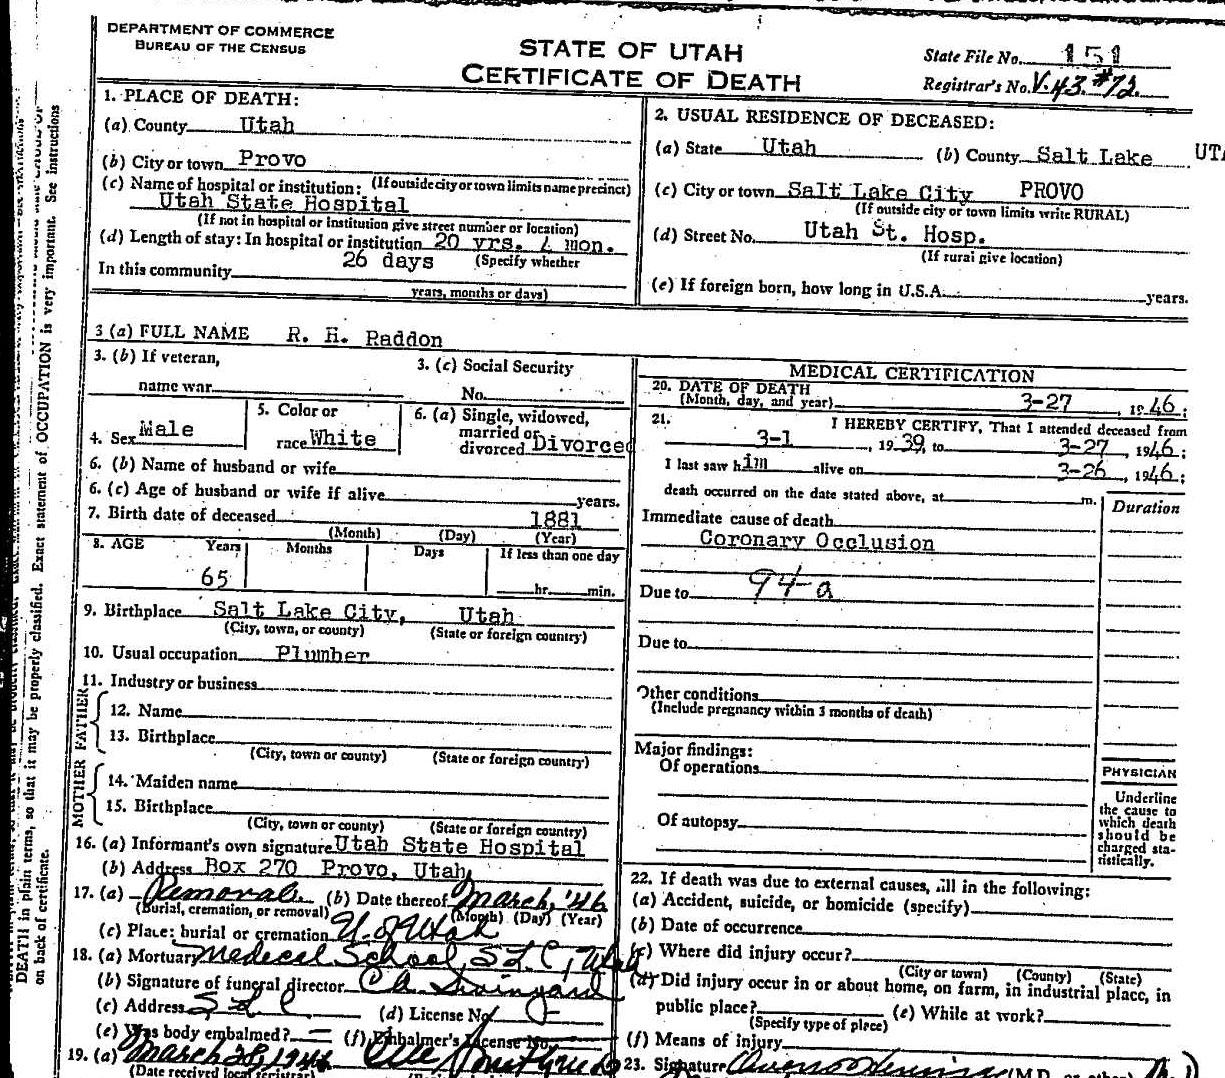 DEPARTMENT OF COMMERCE
BUREAU OF THE CENSUS
STATE OF UTAH
CERTIFICATE OF DEATH
State File No. 151
Registrar's No. V.43 #72
1. PLACE OF DEATH:
(a) County Utah
(b) City or town Provo
(If outside city or town limits name precinct)
(c) Name of hospital or institution:
Utah State Hospital
(If not in hospital or Institution give street number or location)
(d) Length of stay: In hospital or institution 20 yrs. mon.
26 days (Specify whether
In this community
years, months or days)
2. USUAL RESIDENCE OF DECEASED:
(a) State Utah (b) County Salt Lake UTA
(c) City or town Salt Lake City PROVO
(If outside city or town limits write RURAL)
(d) Street No. Utah St. Hosp.
(If rural give location)
(e) If foreign born, how long in U.S.A. years.
3 (a) FULL NAME R. H. Raddon
3. (b) If veteran,
name war
3. (c) Social Security
No.
4. Sex Male
5. Color or
race White
6. (a) Single, widowed,
married or
divorced Divorced
6. (b) Name of husband or wife
6. (c) Age of husband or wife if alive years.
7. Birth date of deceased 1881
(Month) (Day) (Year)
8. AGE Years Months Days If less than one day
65 hr. min.
9. Birthplace Salt Lake City, Utah
(City, town, or county) (State or foreign country)
10. Usual occupation Plumber
11. Industry or business
FATHER
12. Name
13. Birthplace
(City, town or county) (State or foreign country)
MOTHER
14. Maiden name
15. Birthplace
(City, town or county) (State or foreign country)
16. (a) Informant's own signature Utah State Hospital
(b) Address Box 270 Provo, Utah
17. (a) Removal (b) Date thereof March, '46
(Burial, cremation, or removal) (Month) (Day) (Year)
(c) Place; burial or cremation U. of Utah
18. (a) Mortuary Medical School, S L C, Utah
(b) Signature of funeral director
(c) Address S L C (d) License No.
(e) Was body embalmed? (f) Embalmer's License No.
19. (a) March 28, 1946
(Date received local registrar)
MEDICAL CERTIFICATION
20. DATE OF DEATH
(Month, day, and year) 3-27, 1946;
21. I HEREBY CERTIFY, That I attended deceased from
3-1, 1939, to 3-27, 1946;
I last saw him alive on 3-26, 1946;
death occurred on the date stated above, at m.
Duration
Immediate cause of death
Coronary Occlusion
Due to 94-a
Due to
Other conditions
(Include pregnancy within 3 months of death)
Major findings:
Of operations
Of autopsy
PHYSICIAN
Underline
the cause to
which death
should be
charged sta-
tistically.
22. If death was due to external causes, fill in the following:
(a) Accident, suicide, or homicide (specify)
(b) Date of occurrence
(c) Where did injury occur?
(City or town) (County) (State)
(d) Did injury occur in or about home, on farm, in industrial place, in
public place? (e) While at work?
(Specify type of place)
(f) Means of injury
23. Signature (M.D. or other)
DEATH in plain terms, so that it may be properly classified. Exact statement of OCCUPATION is very important. See instructions
on back of certificate.